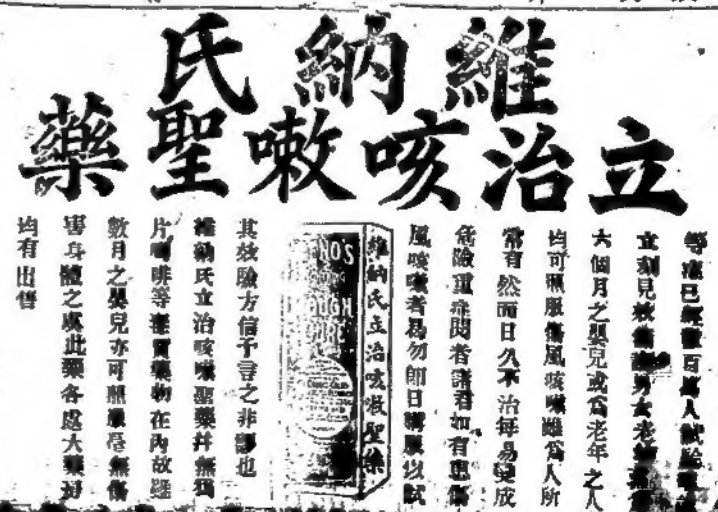 維納氏
立治咳嗽聖藥
等症已經數百萬人試驗
立刻見效男女老
六個月之嬰兒或為老年之人
均可照服傷風咳嗽雖為人所
常有然而日久不治每易變成
危險重症閱者諸君如有患傷
風咳嗽者曷勿即日購服以試
VENO'S
COUGH
CURE
維納氏立治咳嗽聖藥
其效驗方信予言之非謬也
維納氏立治咳嗽聖藥幷無鴉
片嗎啡等雜質藥物在內故雖
數月之嬰兒亦可照服毫無傷
害身體之虞此藥各處大藥房
均有出售